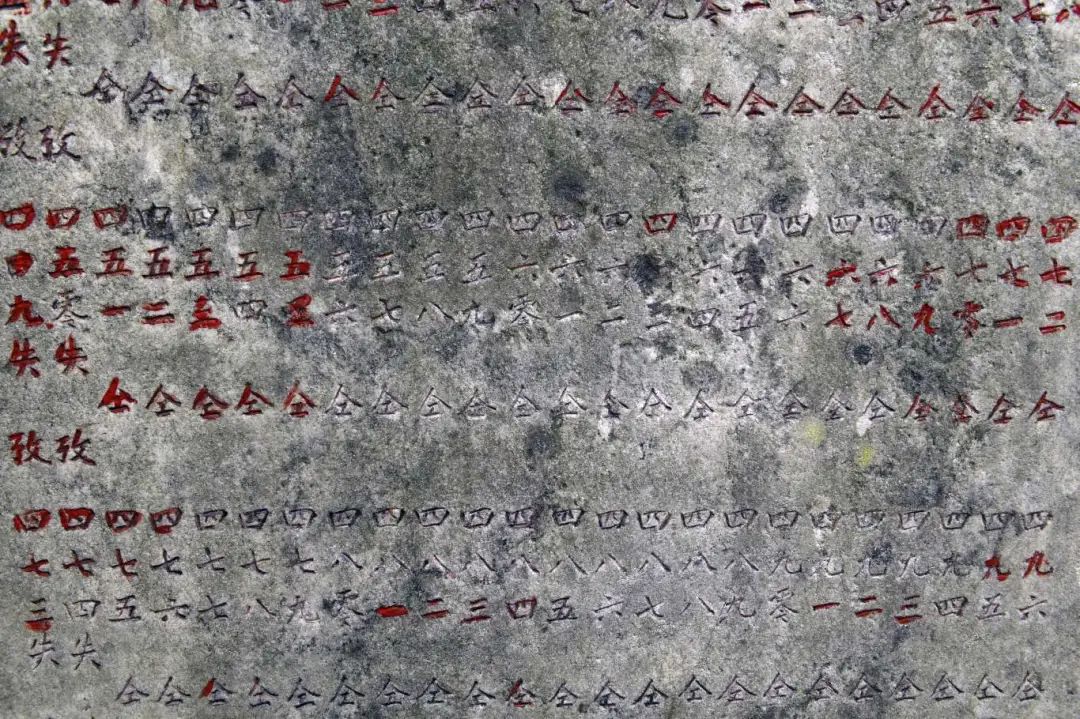 七八九零一二三四五六七八九零一二三四五六七八
失失
仝仝仝仝仝仝仝仝仝仝仝仝仝仝仝仝仝仝仝仝仝仝
攷攷
四四四四四四四四四四四四四四四四四四四四四四四四
四五五五五五五五五五五六六六六六六六六六六六七七七
九零一二三四五六七八九零一二三四五六七八九零一二
失失
仝仝仝仝仝仝仝仝仝仝仝仝仝仝仝仝仝仝仝仝仝仝
攷攷
四四四四四四四四四四四四四四四四四四四四四四四四
七七七七七七七八八八八八八八八八八九九九九九九九
三四五六七八九零一二三四五六七八九零一二三四五六
失失
仝仝仝仝仝仝仝仝仝仝仝仝仝仝仝仝仝仝仝仝仝仝